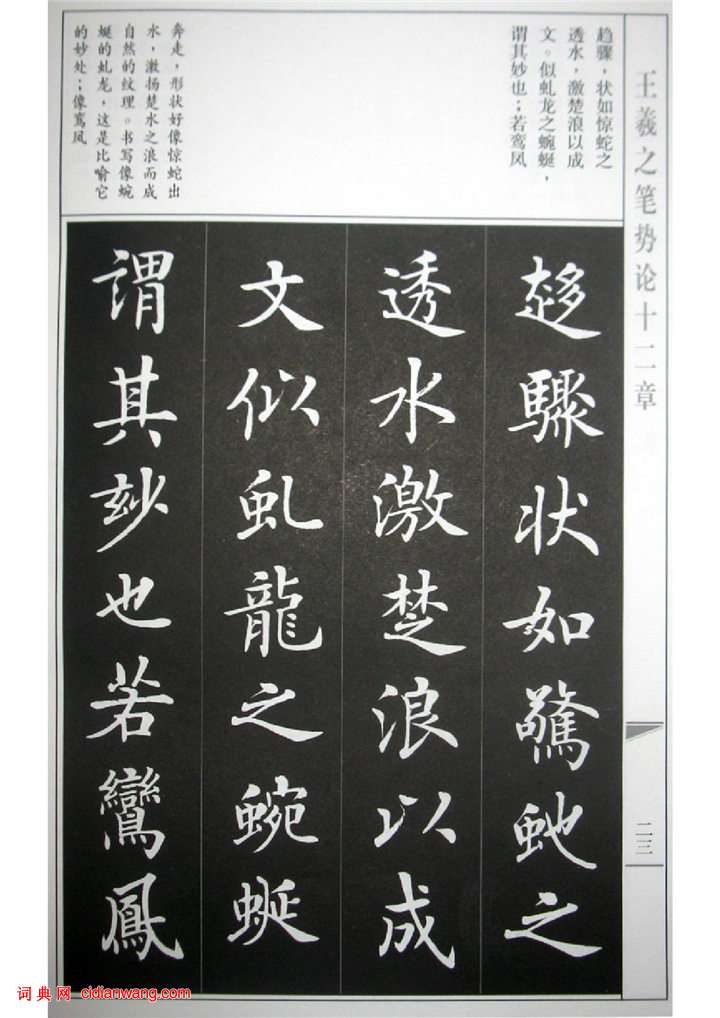 王羲之笔势论十二章
二三
趋骤，状如惊蛇之
透水，激楚浪以成
文。似虬龙之蜿蜒，
谓其妙也；若鸾凤
奔走，形状好像惊蛇出
水，激扬楚水之浪而成
自然的纹理。书写像蜿
蜒的虬龙，这是比喻它
的妙处；像鸾凤
趍驟状如驚虵之
透水激楚浪以成
文似虬龍之蜿蜒
謂其玅也若鸞鳳
词典网 cidianwang.com